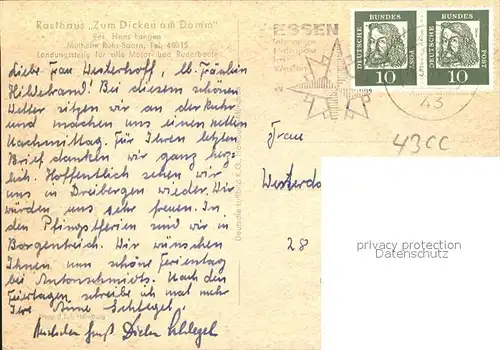 Rasthaus „Zum Dicken am Damm"
Bes. Hans Langen
Mülheim Ruhr-Saarn, Tel. 48015
Landungsstelle für alle Motor- und Ruderboote
Liebe Frau Westerhoff, lb. Fräulein
Hildebrand! Bei diesem schönen
Wetter sitzen wir an der Ruhr
und machen uns einen netten
Nachmittag. Für Ihren letzten
Brief danken wir ganz herz-
lich. Hoffentlich sehen wir
uns in Dreibergen wieder. Wir
würden uns sehr freuen. In
den Pfingstferien sind wir in
Borgentreich. Wir wünschen
Ihnen schöne Ferientage
bei Antonschmidts. Nach den
Feiertagen schreibe ich mal mehr
Ihre Anne Schlegel,
Gruß Dieter Schlegel
ESSEN
DEUTSCHE BUNDES POST
10
DEUTSCHE BUNDES POST
10
43
43CC
Frau
28
privacy protection
Datenschutz